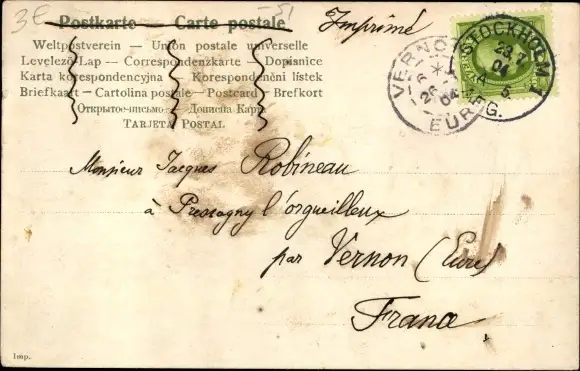 3€ -51
Postkarte — Carte postale Imprimé
Weltpostverein — Union postale universelle
Levelező-Lap — Correspondenzkarte — Dopisnice
Karta korespondencyjna — Korespondenční lístek
Briefkaart — Cartolina postale — Postcard — Brefkort
Открытое письмо — Дописна Карта
TARJETA POSTAL
STOCKHOLM 1
23 7
04
VERNON
26
04
EURE
Monsieur Jacques Robineau
à Pressagny l'orgueilleux
par Vernon (Eure)
France
Imp.